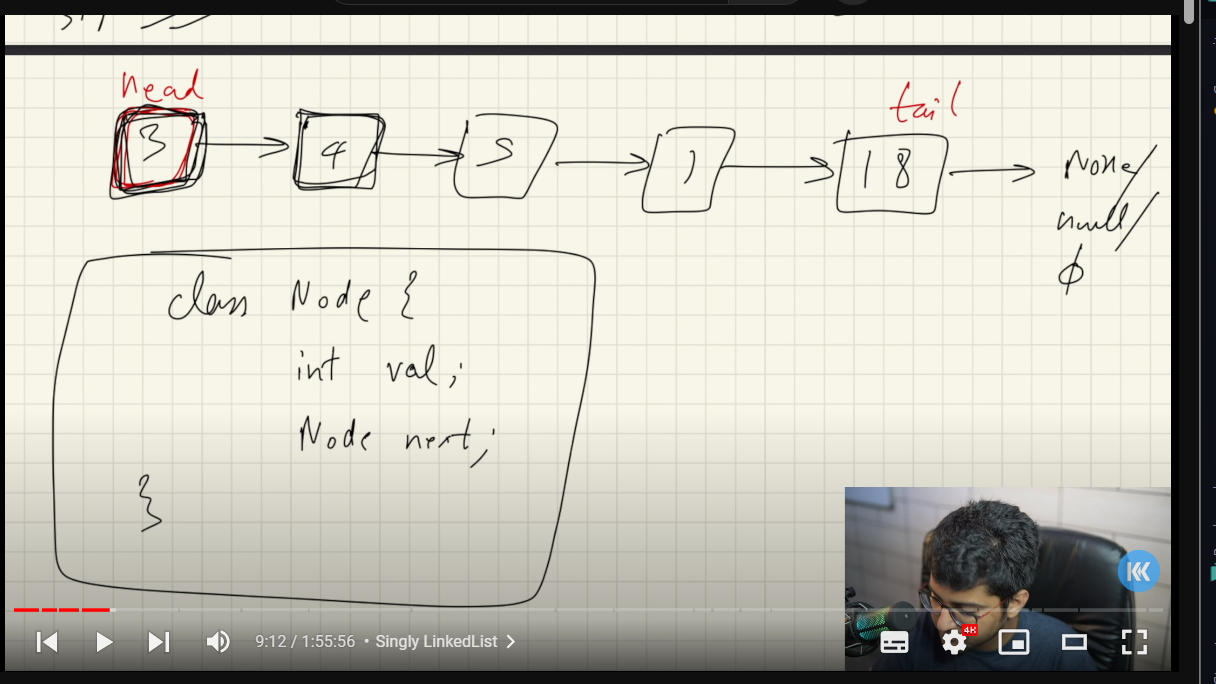 head
tail
3
4
5
1
18
None/
null/
ϕ
class Node {
int val;
Node next;
}
9:12 / 1:55:56 • Singly LinkedList
4K